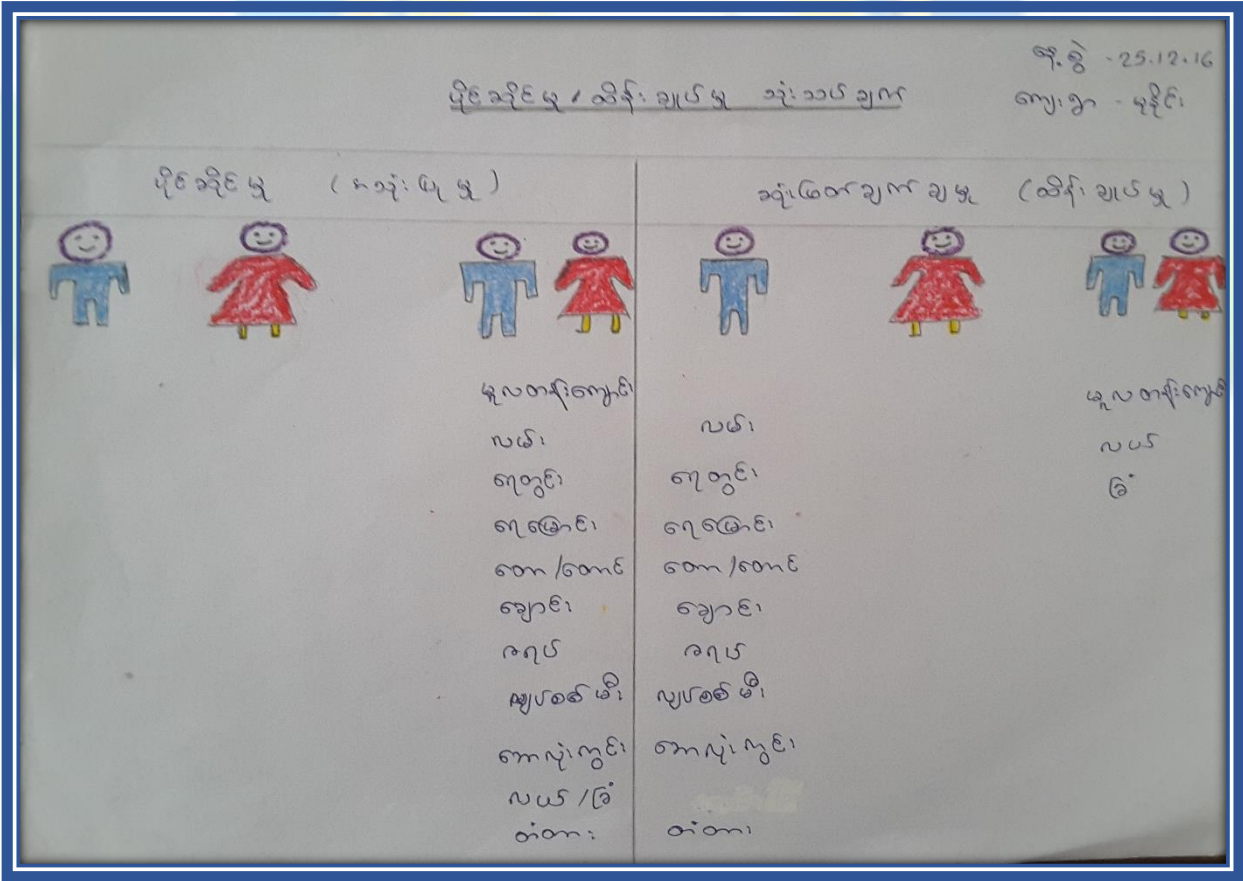 နေ့စွဲ - 25.12.16
ပိုင်ဆိုင်မှု / ထိန်းချုပ်မှု သုံးသပ်ချက်
ကျေးရွာ - မုနိုင်း
ပိုင်ဆိုင်မှု (အသုံးပြုမှု)
ဆုံးဖြတ်ချက်ချမှု (ထိန်းချုပ်မှု)
မူလတန်းကျောင်း
လမ်း
ရေတွင်း
ရေမြောင်း
တော/တောင်
ချောင်း
ဇရပ်
လျှပ်စစ်မီး
ဘောလုံးကွင်း
လယ်/ခြံ
တံတား
လမ်း
ရေတွင်း
ရေမြောင်း
တော/တောင်
ချောင်း
ဇရပ်
လျှပ်စစ်မီး
ဘောလုံးကွင်း
တံတား
မူလတန်းကျောင်း
လယ်
ခြံ